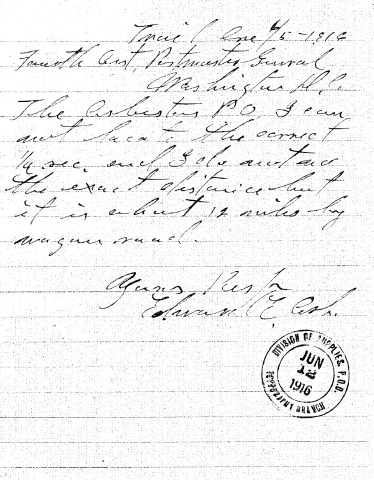 Trail Ore 6/5-1916
Fourth Asst. Postmaster General
Washington D.C.
The Asbestos P.O. I can
not locate the correct
1/4 sec. and I do not know
the exact distance but
it is about 12 miles by
wagon road.
Yours Resp
Edward E Ash.
DIVISION OF SUPPLIES, P.O.D.
JUN
12
1916
TOPOGRAPHY BRANCH